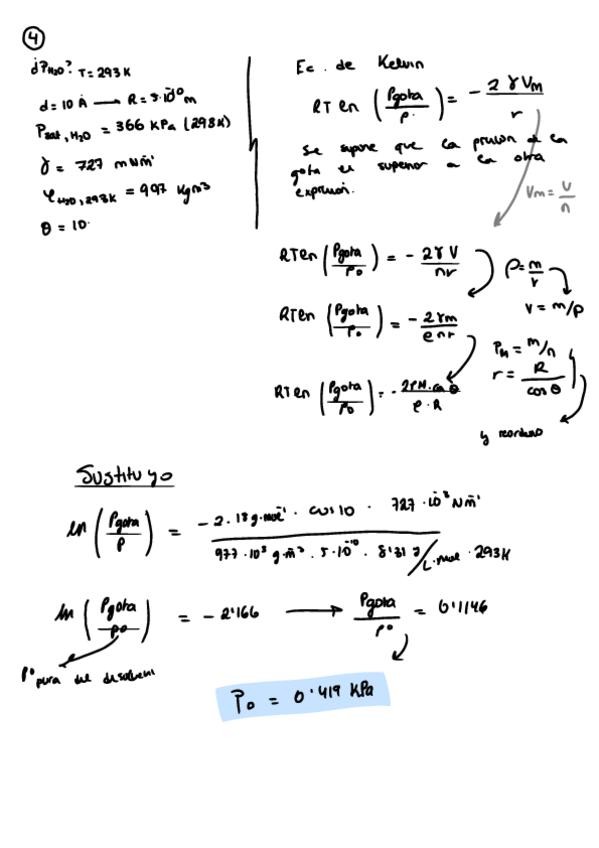 4
d P H2O? T = 293 K
d = 10 Å → R = 5·10⁻¹⁰ m
P sat, H2O = 366 KPa (293K)
γ = 727 mNm⁻¹
ρ H2O, 293K = 997 Kgm⁻³
θ = 10·
Ec. de Kelvin
RT ln (Pgota / P·) = - 2 γ Vm / r
Se supone que la presión de la
gota es superior a la otra
expresión.
Vm = V / n
RT ln (Pgota / P0) = - 2γ V / nr
ρ = m / r
V = m/ρ
RT ln (Pgota / P0) = - 2γm / ρnr
PM = m/n
r = R / cos θ
RT ln (Pgota / P0) = - 2γM·cos θ / ρ·R
y reordeno
Sustituyo
ln (Pgota / P) = -2·18 g·mol⁻¹ · cos 10 · 727·10⁻³ Nm⁻¹ / 977·10³ g·m⁻³ · 5·10⁻¹⁰ · 8'31 J/L·mol · 293K
ln (Pgota / P0) = - 2'166 → Pgota / P0 = 0'1146
P0 pura del disolvent
P0 = 0'419 KPa